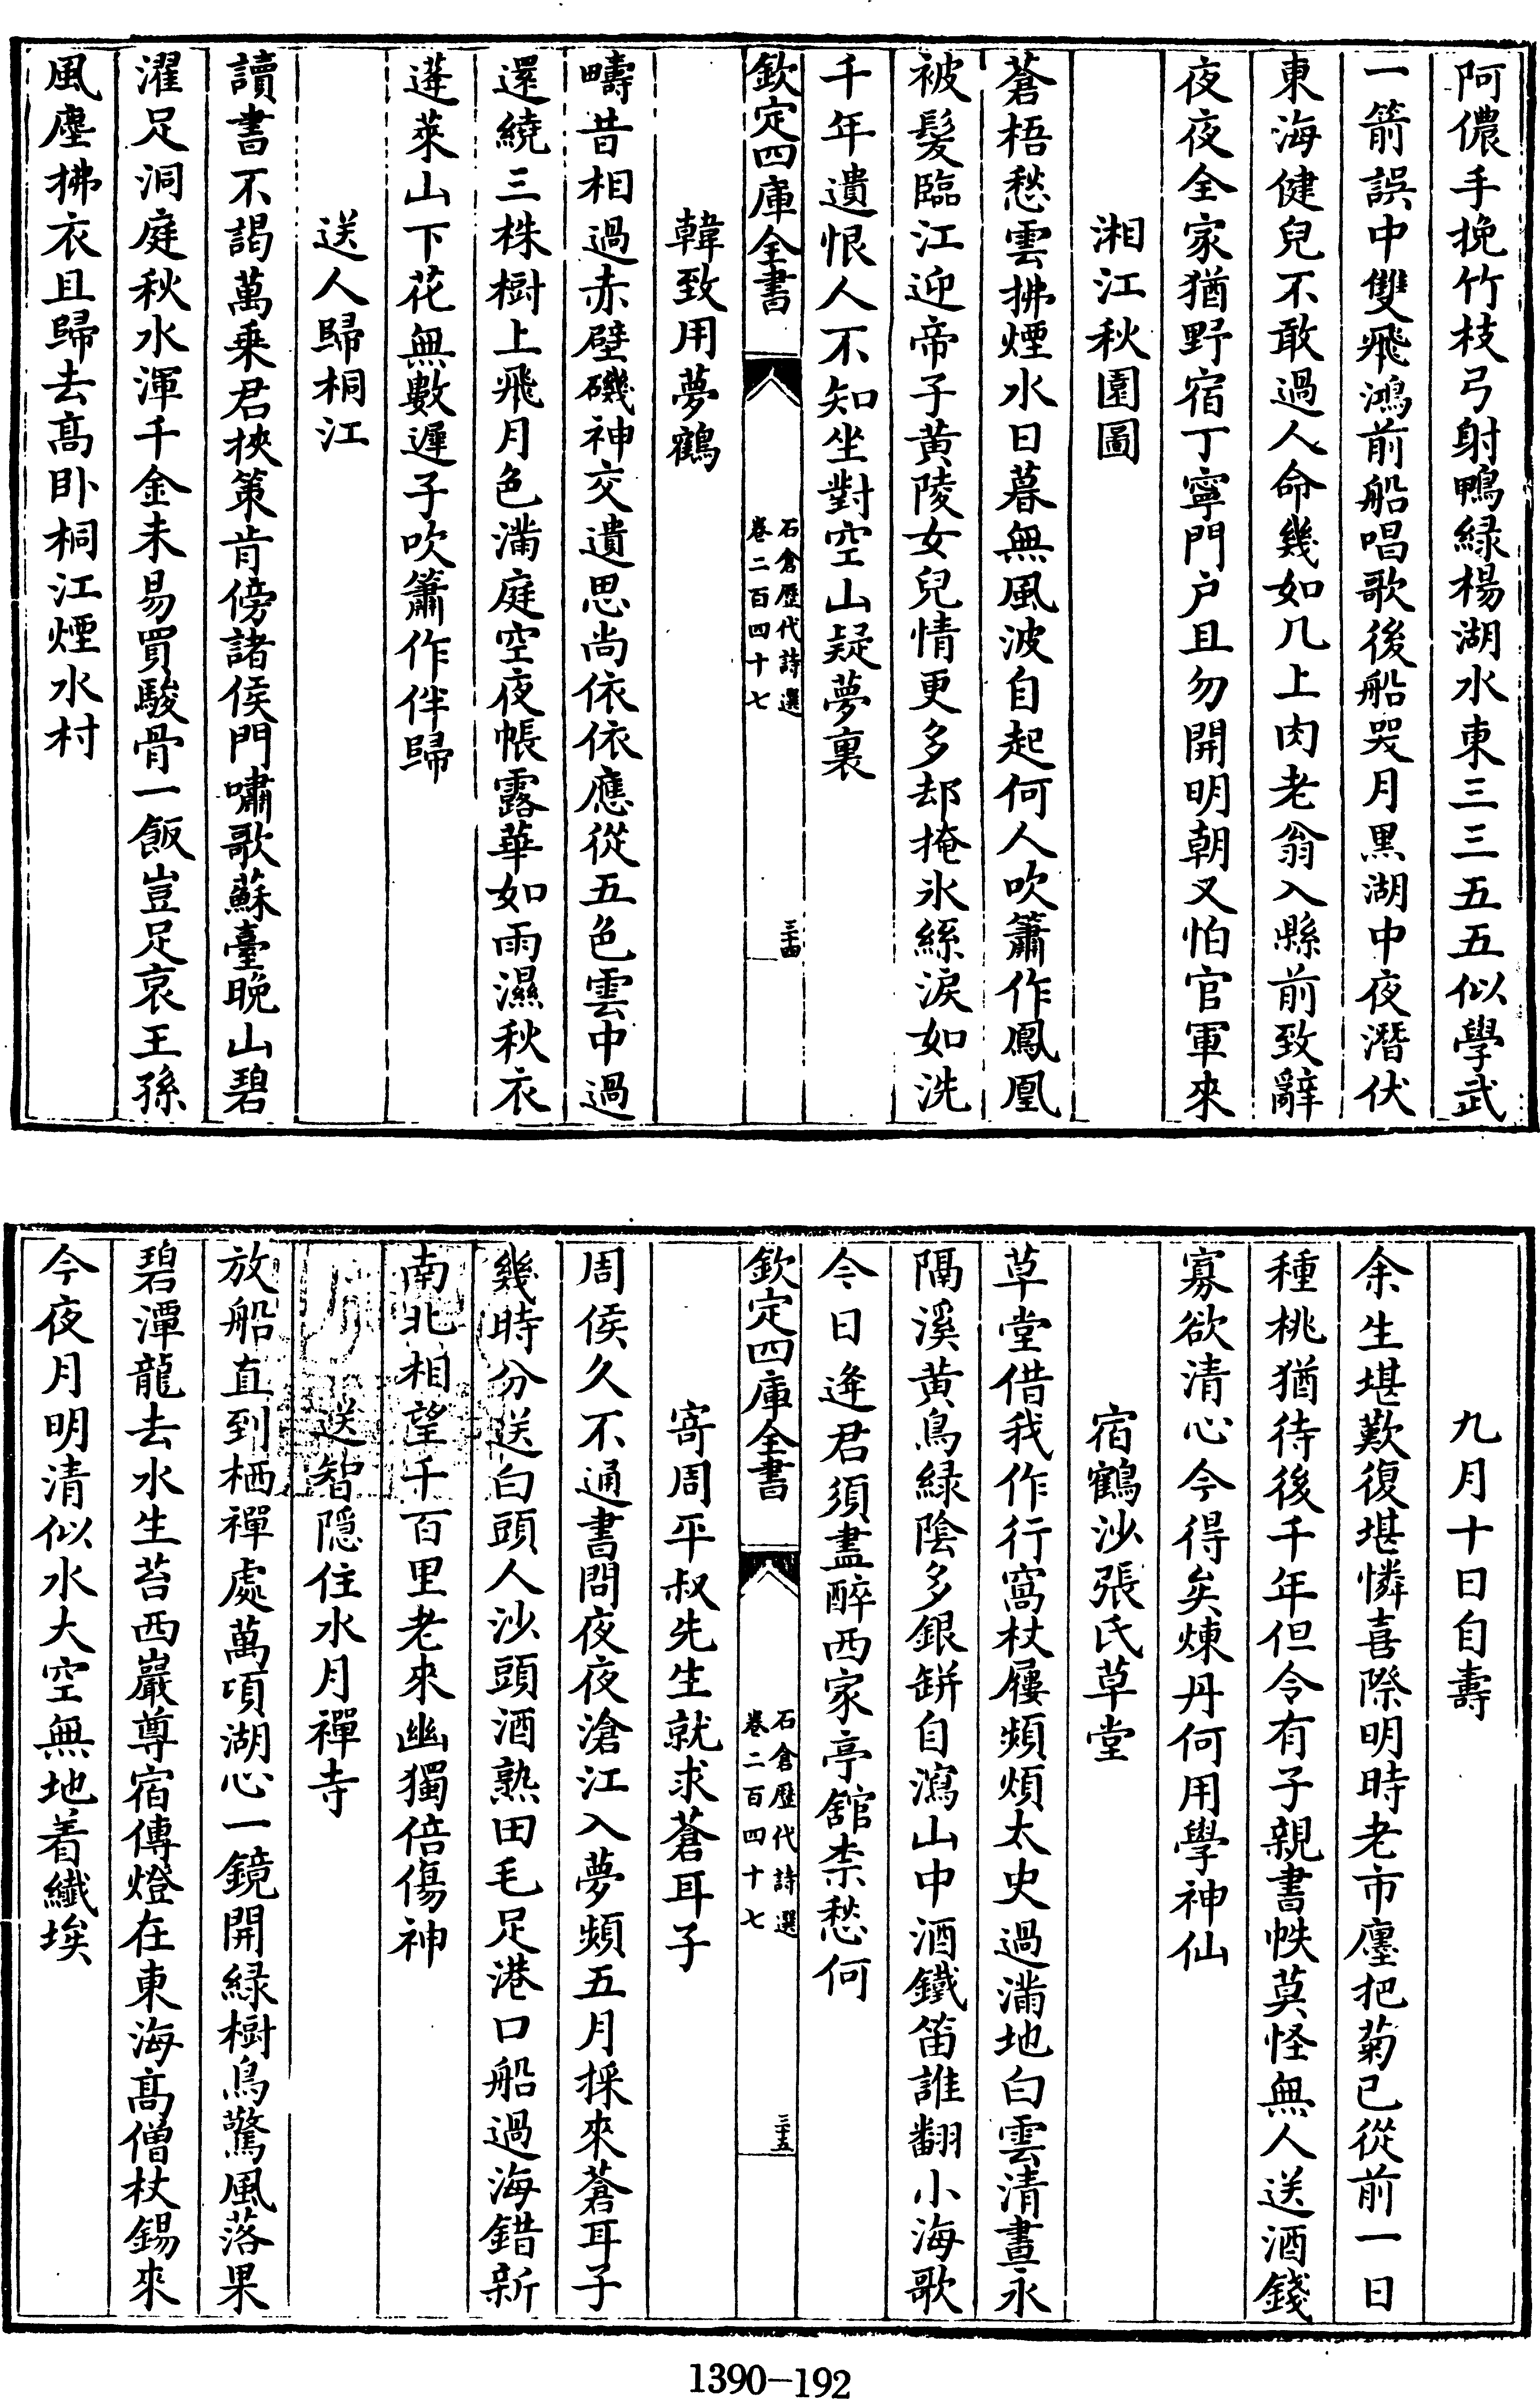 阿儂手挽竹枝弓射鴨緑楊湖水東三三五五似學武
一箭誤中雙飛鴻前船唱歌後船哭月黒湖中夜潛伏
東海健兒不敢過人命幾如几上肉老翁入縣前致辭
夜夜全家猶野宿丁寧門户且勿開明朝又怕官軍來
湘江秋園圖
蒼梧愁雲拂煙水日暮無風波自起何人吹簫作鳳凰
被髮臨江迎帝子黄陵女兒情更多却掩氷絲淚如洗
千年遺恨人不知坐對空山疑夢裏
欽定四庫全書
石倉歷代詩選
卷二百四十七
三十四
韓致用夢鶴
疇昔相過赤壁磯神交遺思尚依依應從五色雲中過
還繞三株樹上飛月色滿庭空夜帳露華如雨濕秋衣
蓬萊山下花無數遲子吹簫作伴歸
送人歸桐江
讀書不謁萬乗君挾策肯傍諸侯門嘯歌蘇臺晚山碧
濯足洞庭秋水渾千金未易買駿骨一飯豈足哀王孫
風塵拂衣且歸去髙卧桐江煙水村
九月十日自壽
余生堪歎復堪憐喜際明時老市廛把菊已從前一日
種桃猶待後千年但令有子親書帙莫怪無人送酒錢
寡欲清心今得矣煉丹何用學神仙
宿鶴沙張氏草堂
草堂借我作行窩杖屨頻煩太史過滿地白雲清晝永
隔溪黄鳥緑陰多銀缾自瀉山中酒鐵笛誰翻小海歌
今日逄君須盡醉西家亭舘柰愁何
欽定四庫全書
石倉歷代詩選
卷二百四十七
三十五
寄周平叔先生就求蒼耳子
周侯久不通書問夜夜滄江入夢頻五月採來蒼耳子
幾時分送白頭人沙頭酒熟田毛足港口船過海錯新
南北相望千百里老來幽獨倍傷神
送智隠住水月禪寺
放船直到栖禪處萬頃湖心一鏡開緑樹鳥驚風落果
碧潭龍去水生苔西巖尊宿傳燈在東海髙僧杖錫來
今夜月明清似水大空無地着纖埃
1390-192